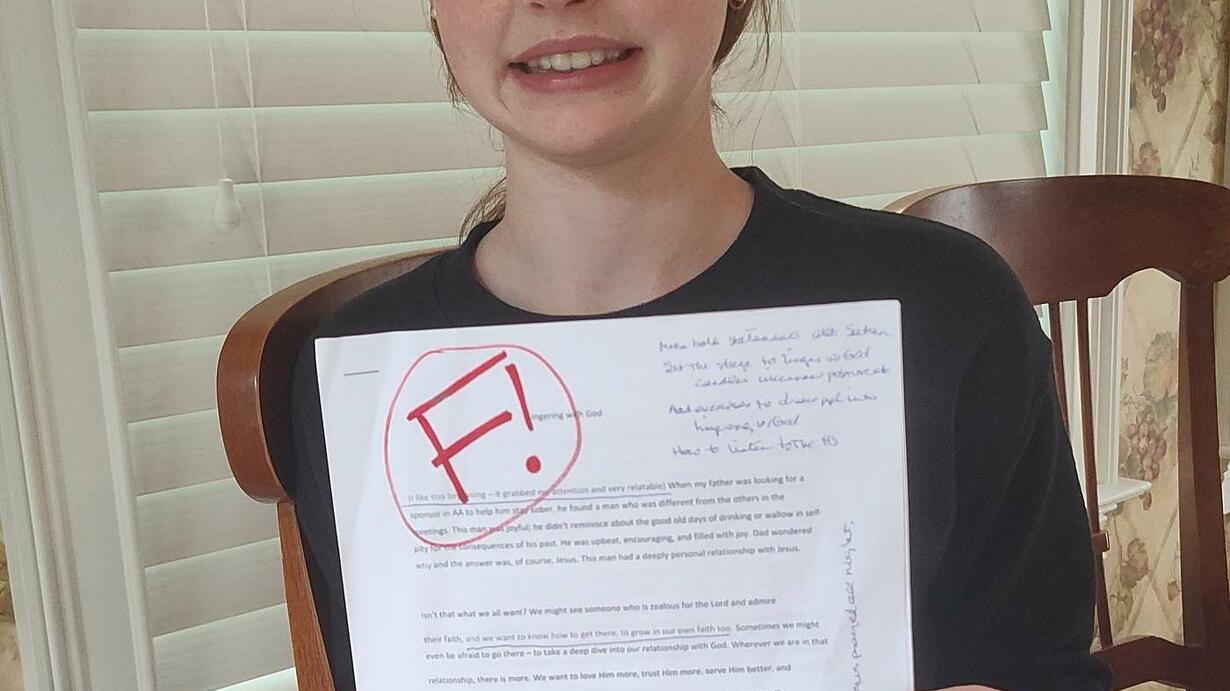 F!
ingering with God
statements
Set the stage to linger w/ God
into
w/ God
How to listen to the HS
(I like this beginning – it grabbed my attention and very relatable) When my father was looking for a
sponsor in AA to help him stay sober, he found a man who was different from the others in the
meetings. This man was joyful; he didn't reminisce about the good old days of drinking or wallow in self-
pity for the consequences of his past. He was upbeat, encouraging, and filled with joy. Dad wondered
why and the answer was, of course, Jesus. This man had a deeply personal relationship with Jesus.
Isn't that what we all want? We might see someone who is zealous for the Lord and admire
their faith, and we want to know how to get there, to grow in our own faith too. Sometimes we might
even be afraid to go there – to take a deep dive into our relationship with God. Wherever we are in that
relationship, there is more. We want to love Him more, trust Him more, serve Him better, and